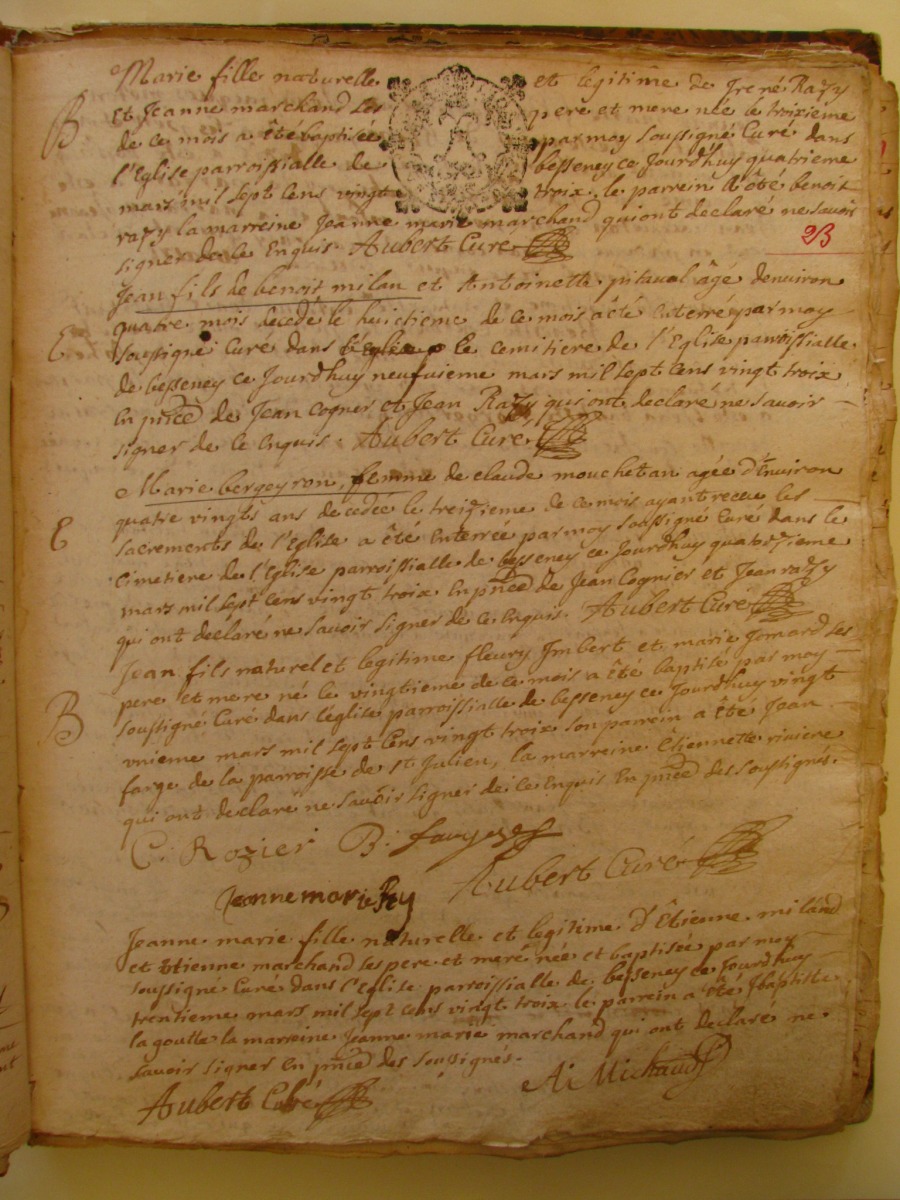 Marie fille naturelle et legitime de Irené Razy
B et Jeanne marchand ses pere et mere née le troixieme
de ce mois a êté baptisée par moy soussigné Curé dans
l'Eglise parroissialle de besseney ce Jourdhuy quatrieme
mars mil sept cens vingt troix. le parrein a êté benoit
razy la marreine Jeanne marie marchand qui ont declaré ne savoir
signer de ce Enquis. Aubert Curé
23
Jean fils de benoit milan et Antoinette pitaval âgé d'environ
quatre mois decedé le huictieme de ce mois a êté Enterré par moy
E soussigné Curé dans le cemitiere de l'Eglise parroissialle
de besseney ce Jourdhuy neufvieme mars mil sept cens vingt troix
En pnce de Jean Cogner et Jean Razy qui ont declaré ne savoir
signer de ce Enquis. Aubert Curé
Marie bergeyron, femme de claude mouchetan agée d'Environ
quatre vingts ans decedée le treizieme de ce mois ayant receu les
E sacrements de l'Eglise a êté Enterrée par moy soussigné Curé dans le
cimetiere de l'Eglise parroissialle de besseney ce Jourdhuy quatorzieme
mars mil sept cens vingt troix En pnce de Jean Cognier et Jean razy
qui ont declaré ne savoir signer de ce Enquis. Aubert Curé
Jean fils naturel et legitime fleury Imbert et marie Jomard ses
pere et mere né le vingtieme de ce mois a êté baptisé par moy
B soussigné Curé dans l'église parroissialle de besseney ce Jourdhuy vingt
vnieme mars mil sept cens vingt troix son parrein a êté Jean
farge de la parroisse de st Julien, la marreine Etiennette riviere
qui ont declaré ne savoir signer de ce Enquis En pnce des soussignés.
C. Rozier B.
Aubert Curé
Jeanne marie Rey
Jeanne marie fille naturelle et legitime d'Etienne miland
et Etienne marchand ses pere et mere née et baptisée par moy
soussigné Curé dans l'Eglise parroissialle de besseney ce Jourdhuy
trentieme mars mil sept cens vingt troix le parrein a êté Jbaptiste
la goutte la marreine Jeanne marie marchand qui ont declaré ne
savoir signer En pnce des soussignés.
Michaud
Aubert Curé